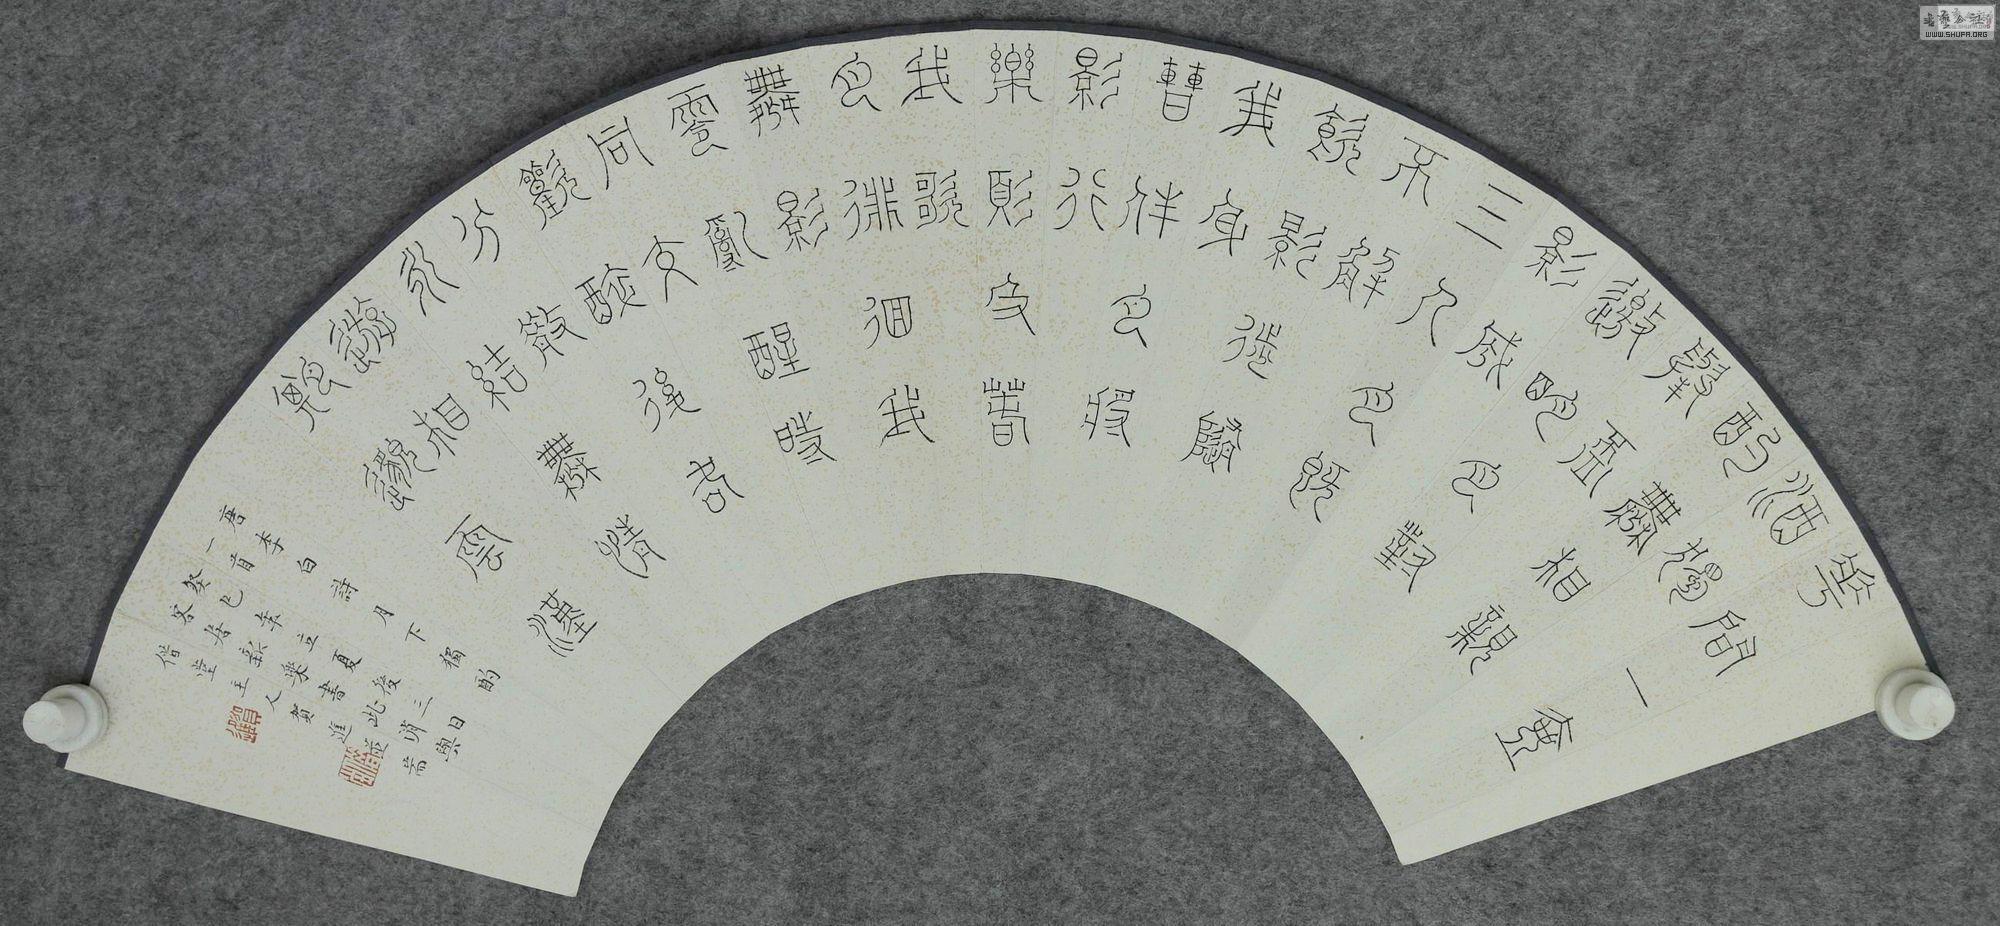 華間一壺
酒獨
酌無相親
舉杯
邀明月對
影成
三人月既
不解
飲影徒隨
我身
暫伴月將
影行
樂須及春
我歌
月徘徊我
舞影
零亂醒時
同交
歡醉後各
分散
永結無情
遊相
期邈雲漢
唐李白詩月下獨酌
一首
癸巳年立夏後三日
客居新樂書此
堂主人賀進